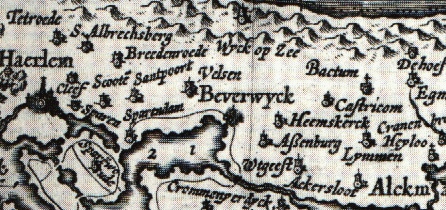 Tetroede
S. Albrechsberg
Breedenroede
Wyck op Zee
Haerlem
Cleef
Scoote
Santpoort
Velsen
Bactum
Dehoef
Egm
Sparen
Sparendam
Beverwyck
Castricom
Heemskerck
Cranen
Assenburg
Heyloo
Lymmen
2
1
Wtgeest
Ackersloot
Alckm